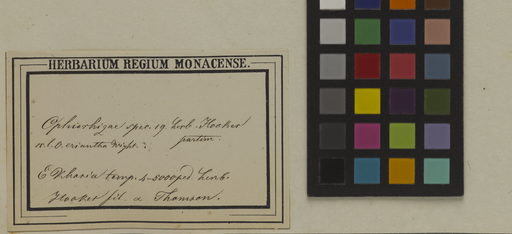 HERBARIUM REGIUM MONACENSE.
Ophiorhizae spec. 19 herb. Hooker
partim.
O. eriantha Wight.
E Khasia temp. 4-5000 ped. herb.
Hooker fil. & Thomson.